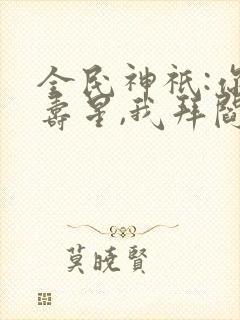 全民神祇:你
壽星,我拜閻
莫曉賢